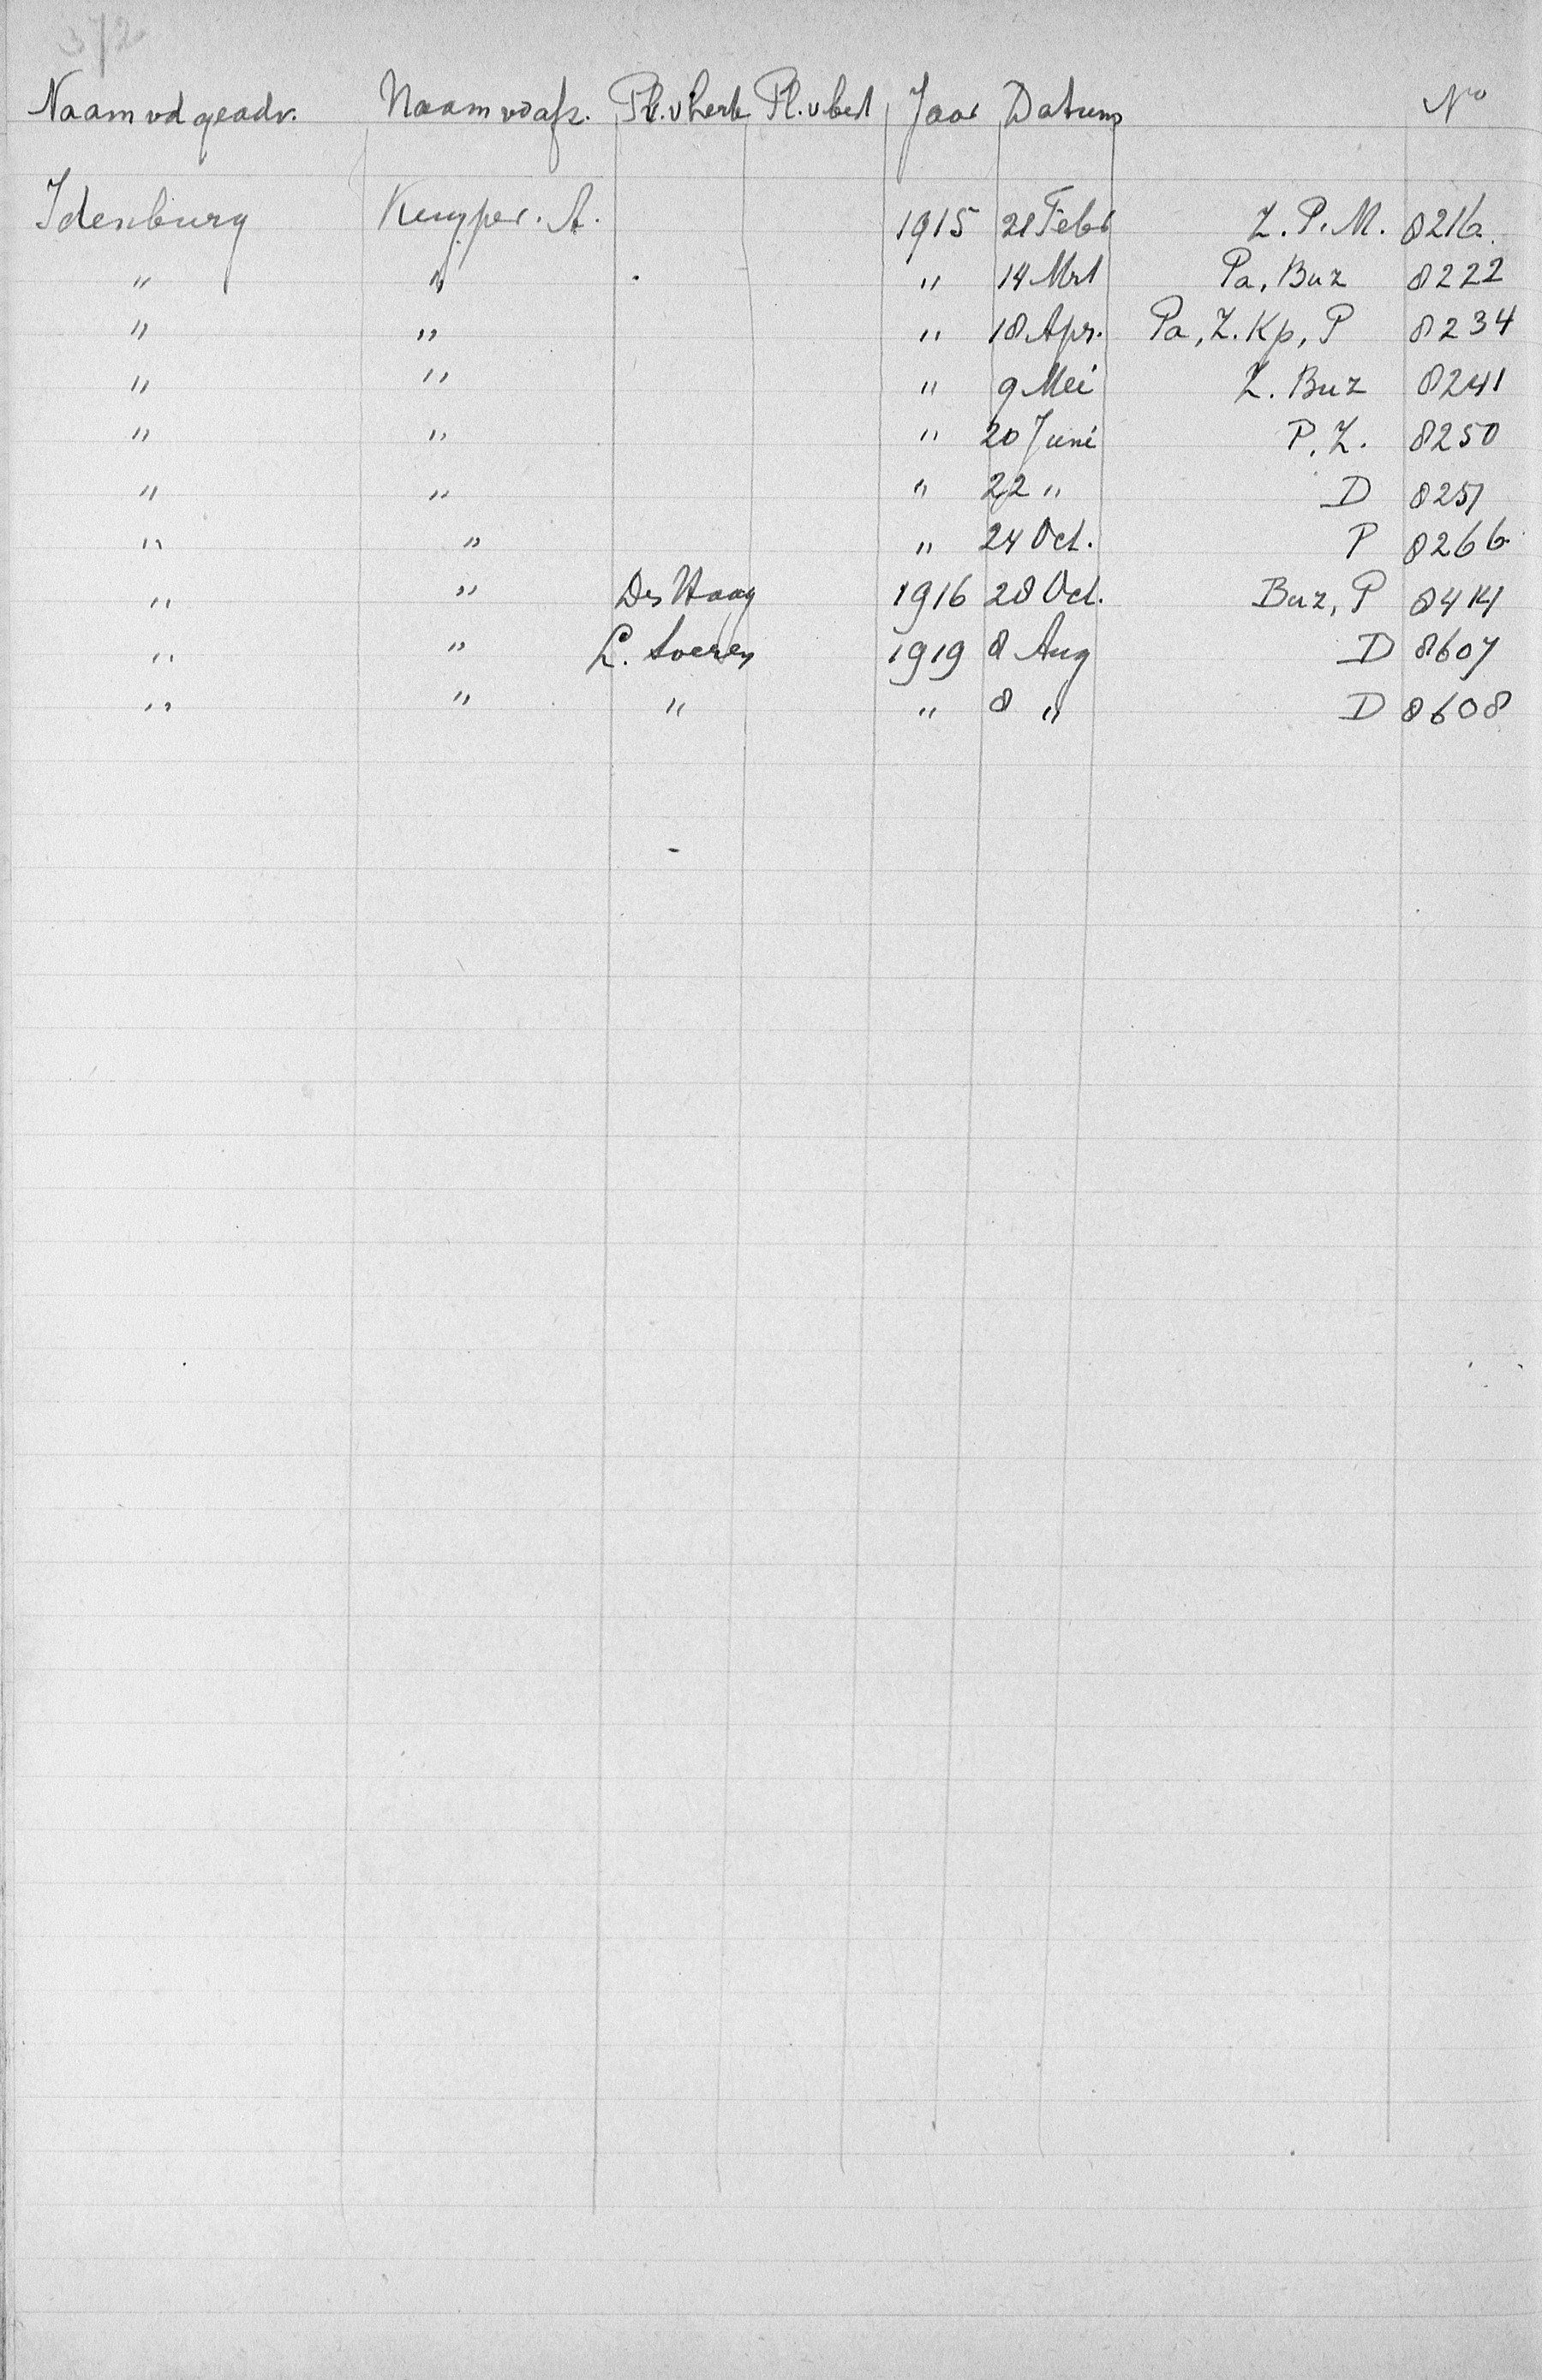 372
Naam vd geadr. Naam vd afz. Pl. v herk Pl. v best Jaar Datum No
Idenburg Kuyper. A. 1915 21 Febr Z. P. M. 8216
" " " 14 Mrt Pa, Buz 8222
" " " 18 Apr. Pa, Z. Kp, P 8234
" " " 9 Mei Z. Buz 8241
" " " 20 Juni P. Z. 8250
" " " 22 " D 8251
" " " 24 Oct. P 8266
" " Den Haag 1916 28 Oct. Buz, P 8414
" " L. Soeren 1919 8 Aug D 8607
" " " " 8 " D 8608